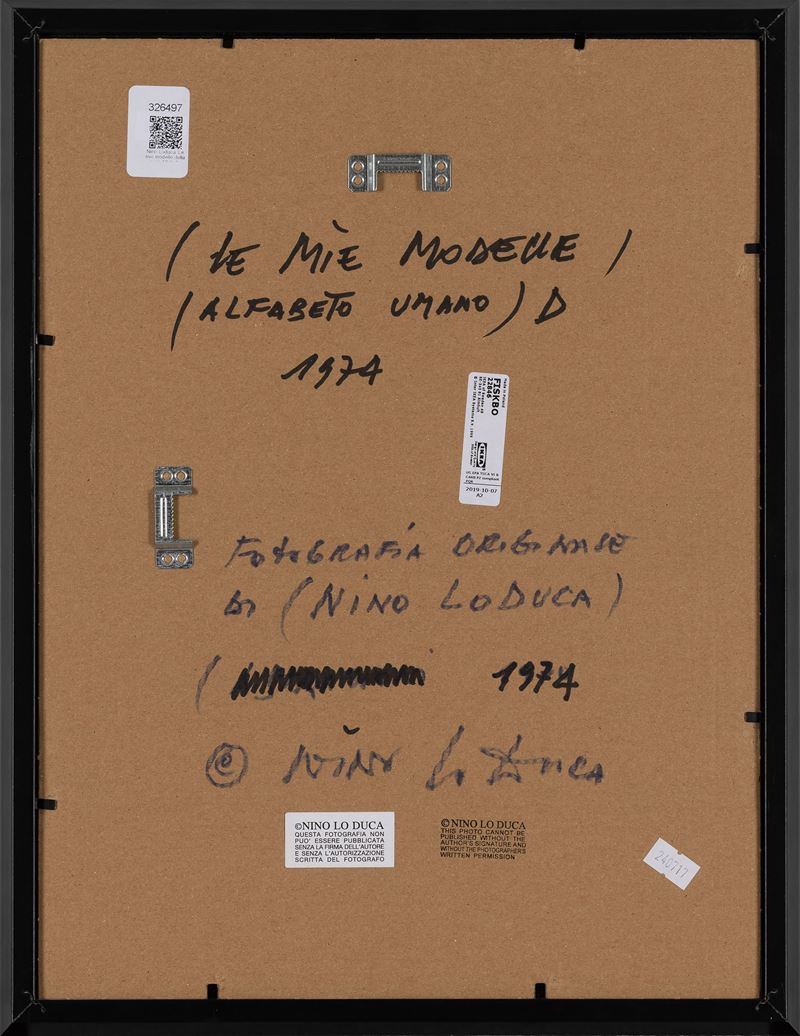 326497
(LE MÌE MODELLE)
(ALFABETO UMANO) D
1974
Made in Poland
FISKBO
22846
IKEA of Sweden AB
© Inter IKEA Systems B.V. 1999
IKEA
US EPA TSCA VI &
CARB P2 compliant
2019-10-07
A2
FOTOGRAFÍA ORIGINALE
DI (NINO LODUCA)
( 1974
© NINO Lo Duca
©NINO LO DUCA
QUESTA FOTOGRAFIA NON
PUO' ESSERE PUBBLICATA
SENZA LA FIRMA DELL'AUTORE
E SENZA L'AUTORIZZAZIONE
SCRITTA DEL FOTOGRAFO
©NINO LO DUCA
THIS PHOTO CANNOT BE
PUBLISHED WITHOUT THE
AUTHOR'S SIGNATURE AND
WITHOUT THE PHOTOGRAPHERS
WRITTEN PERMISSION
240717